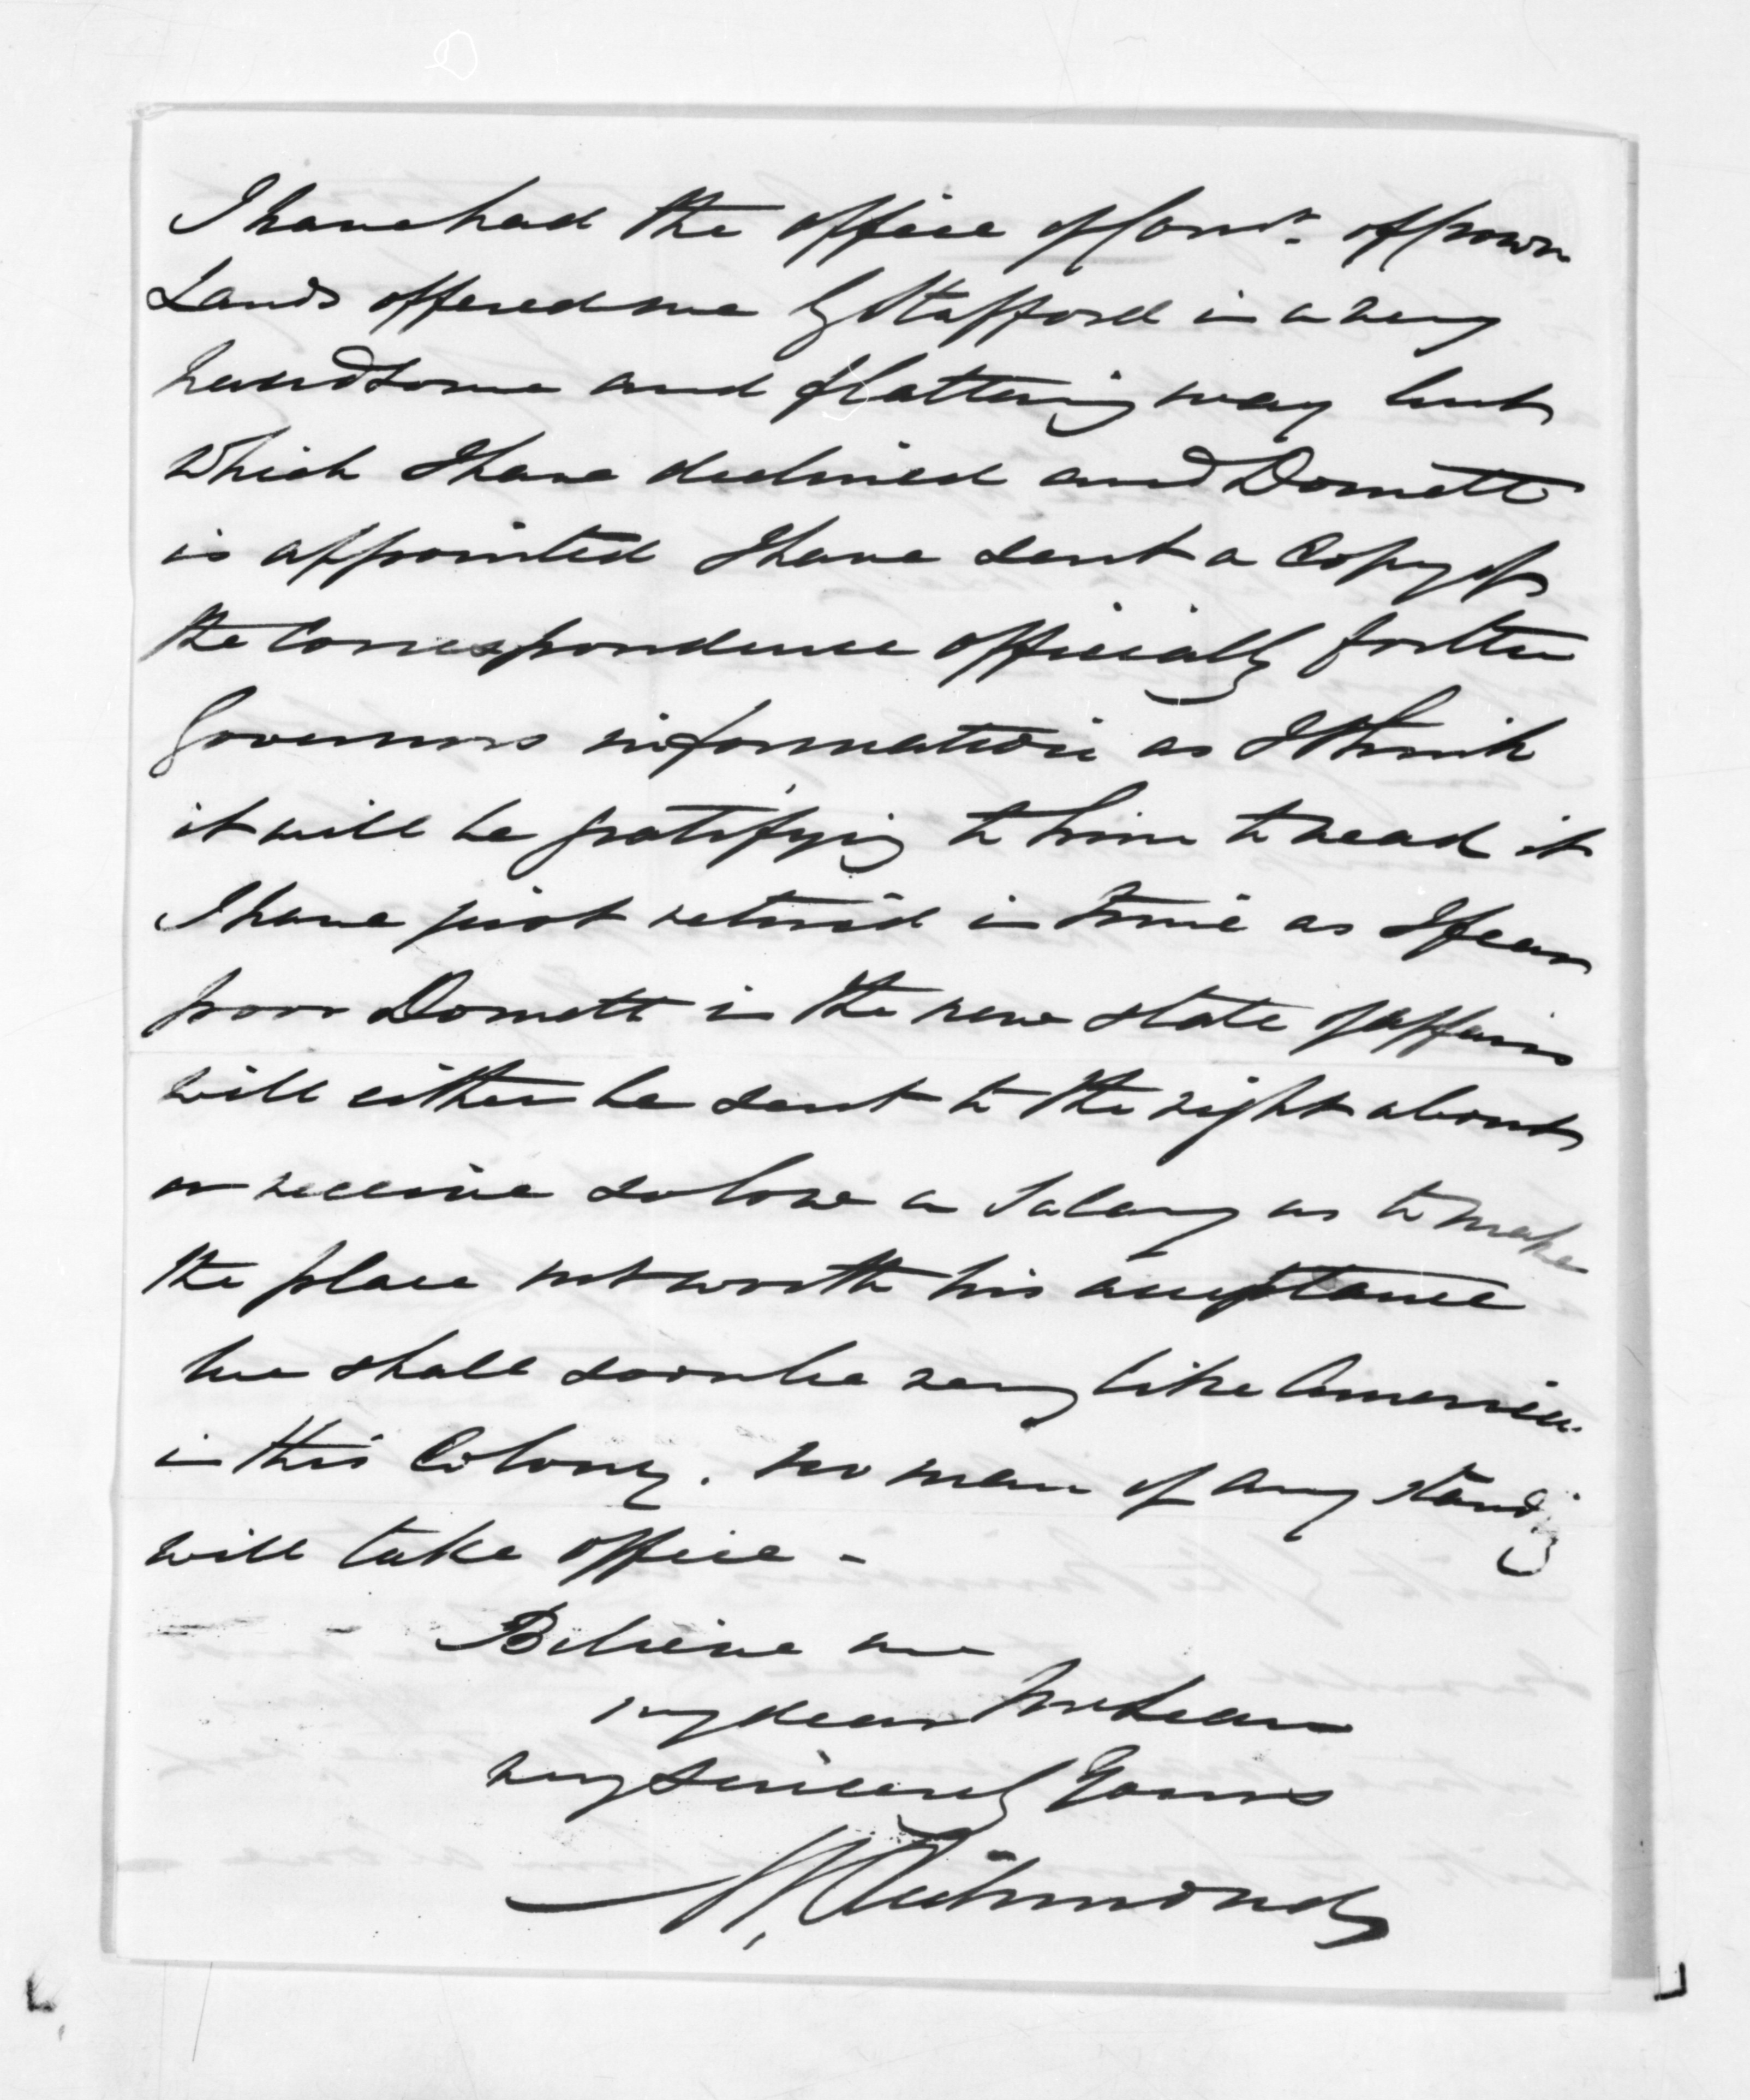 I have had the office of Comr. of Crown
Lands offered me by Stafford in a very
handsome and flattering way but
which I have declined and Domett
is appointed I have sent a Copy of
the Correspondence officially for the
Governors information as I think
it will be gratifying to him to read it
I have just retired in time as I fear
poor Domett in the new state of affairs
will either be sent to the right about
or receive so low a Salary as to make
the place not worth his acceptance
we shall soon be very like America
in this Colony. no man of any standing
will take office -
Believe me
my dear McLean
very sincerely Yours
M. Richmond